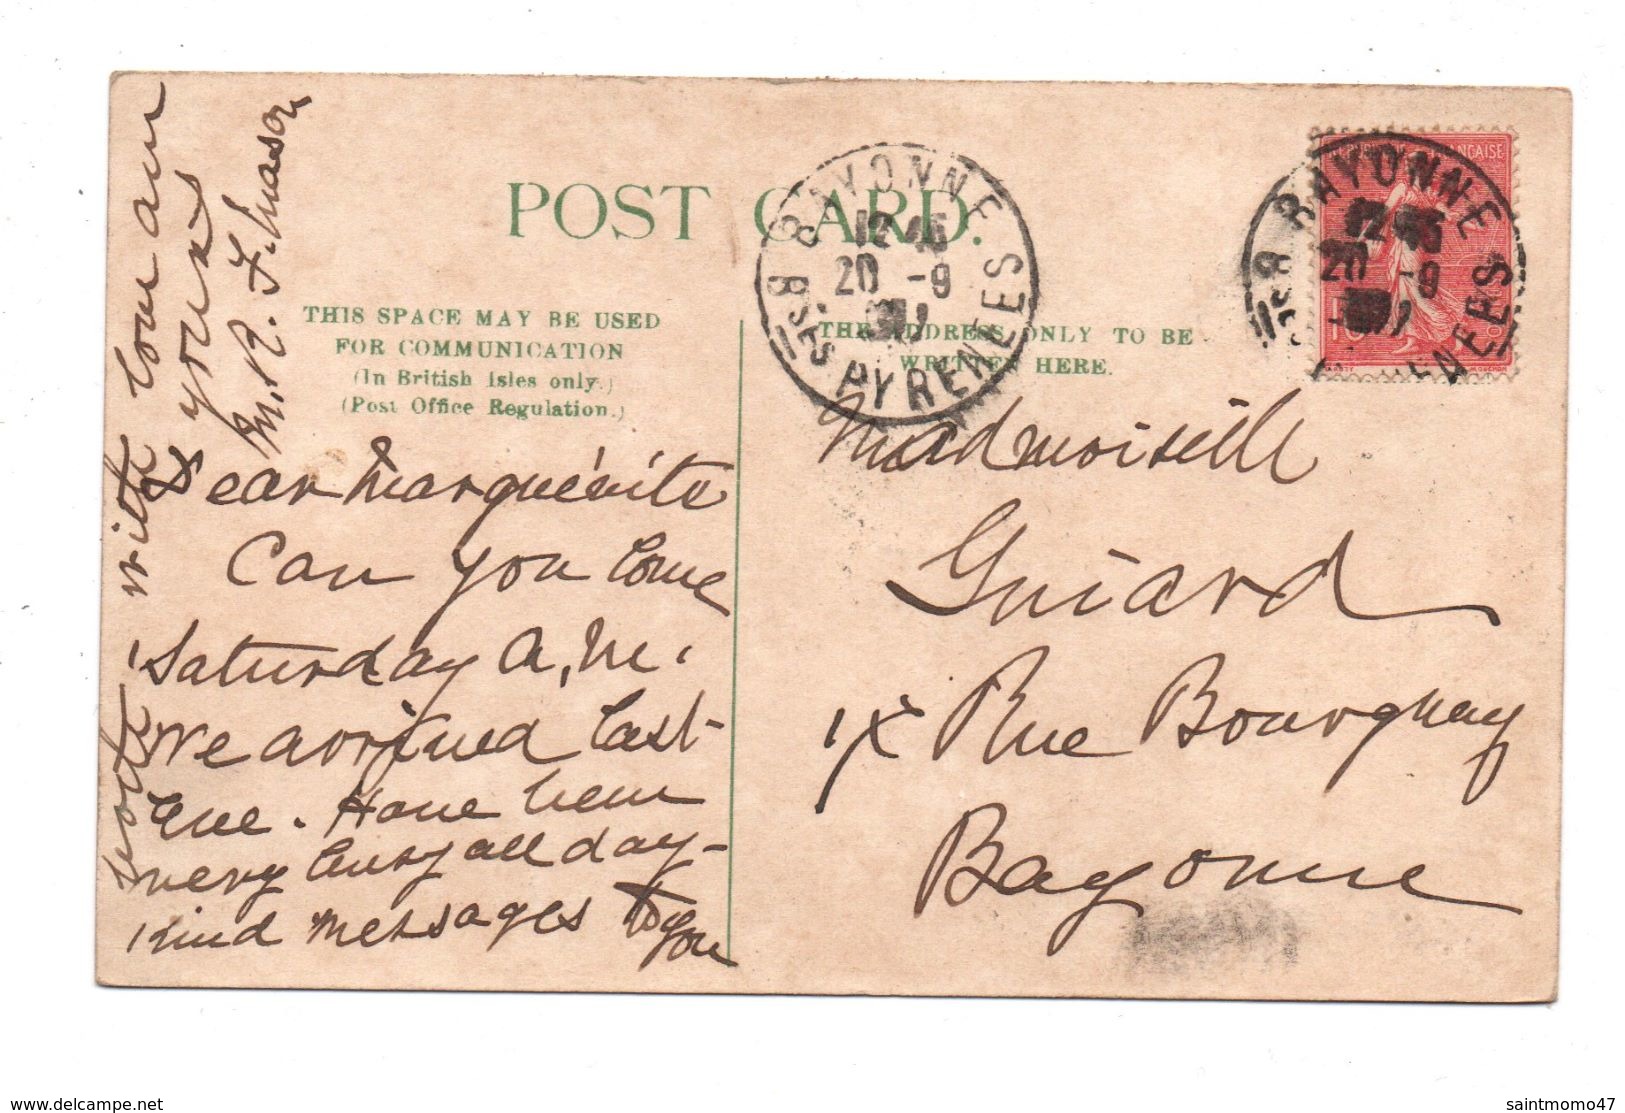 POST CARD.
THIS SPACE MAY BE USED
FOR COMMUNICATION
(In British Isles only.)
(Post Office Regulation.)
THE ADDRESS ONLY TO BE
WRITTEN HERE.
BAYONNE
12 45
20 -9
BSES PYRENEES
BAYONNE
12 45
20 -9
Dear Marguérite
Can you come
Saturday A.M.
We arrived last
Eve. Have been
very busy all day-
Kind messages to you
with
yours
M. R. F. Mason
Mademoiselle
Guiard
1x Rue Bourgnay
Bayonne
saintmomo47